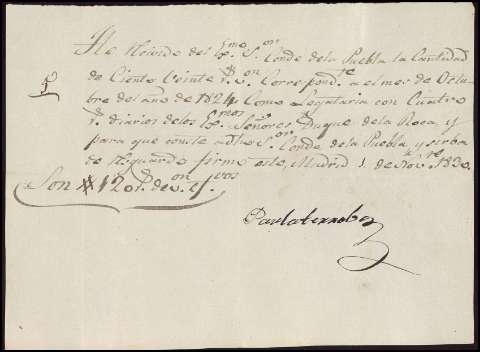 He Recivido del Exmo Sor Conde de la Puebla la Cantidad
de Ciento Veinte rs von Correspondte a el mes de Octu-
bre del año de 1824 Como Legataria con Cuatro
rs diarios de los Exmos Señores Duque de la Roca, y
para que conste a dho Sor Conde de la Puebla y sirba
de Resguardo firmo este, Madrid 1 de Nove 1830.
Son # 120 rs de von efvos
Paula